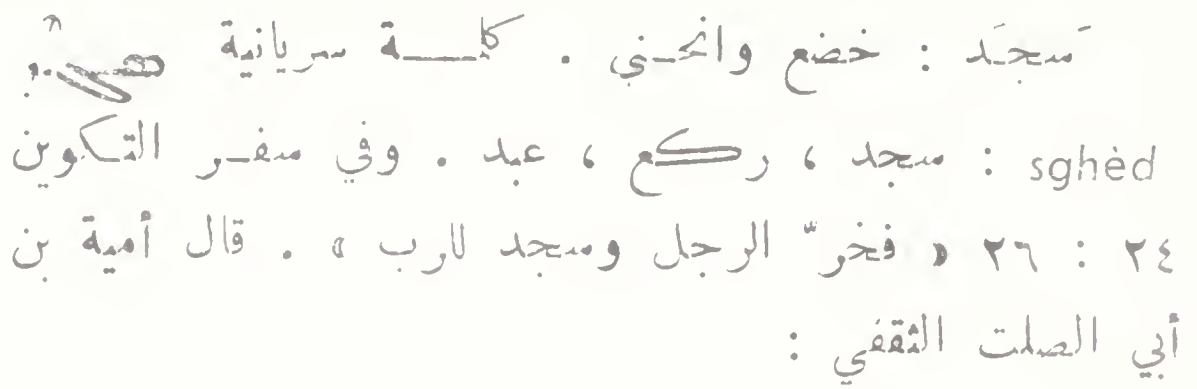 سَجَد : خضع وانحنى . كلمة سريانية ܣܓܶܕ
sghèd : سجد ، ركع ، عبد . وفي سفر التكوين
٢٤ : ٢٦ « فخرّ الرجل وسجد للرب » . قال أمية بن
أبي الصلت الثقفي :